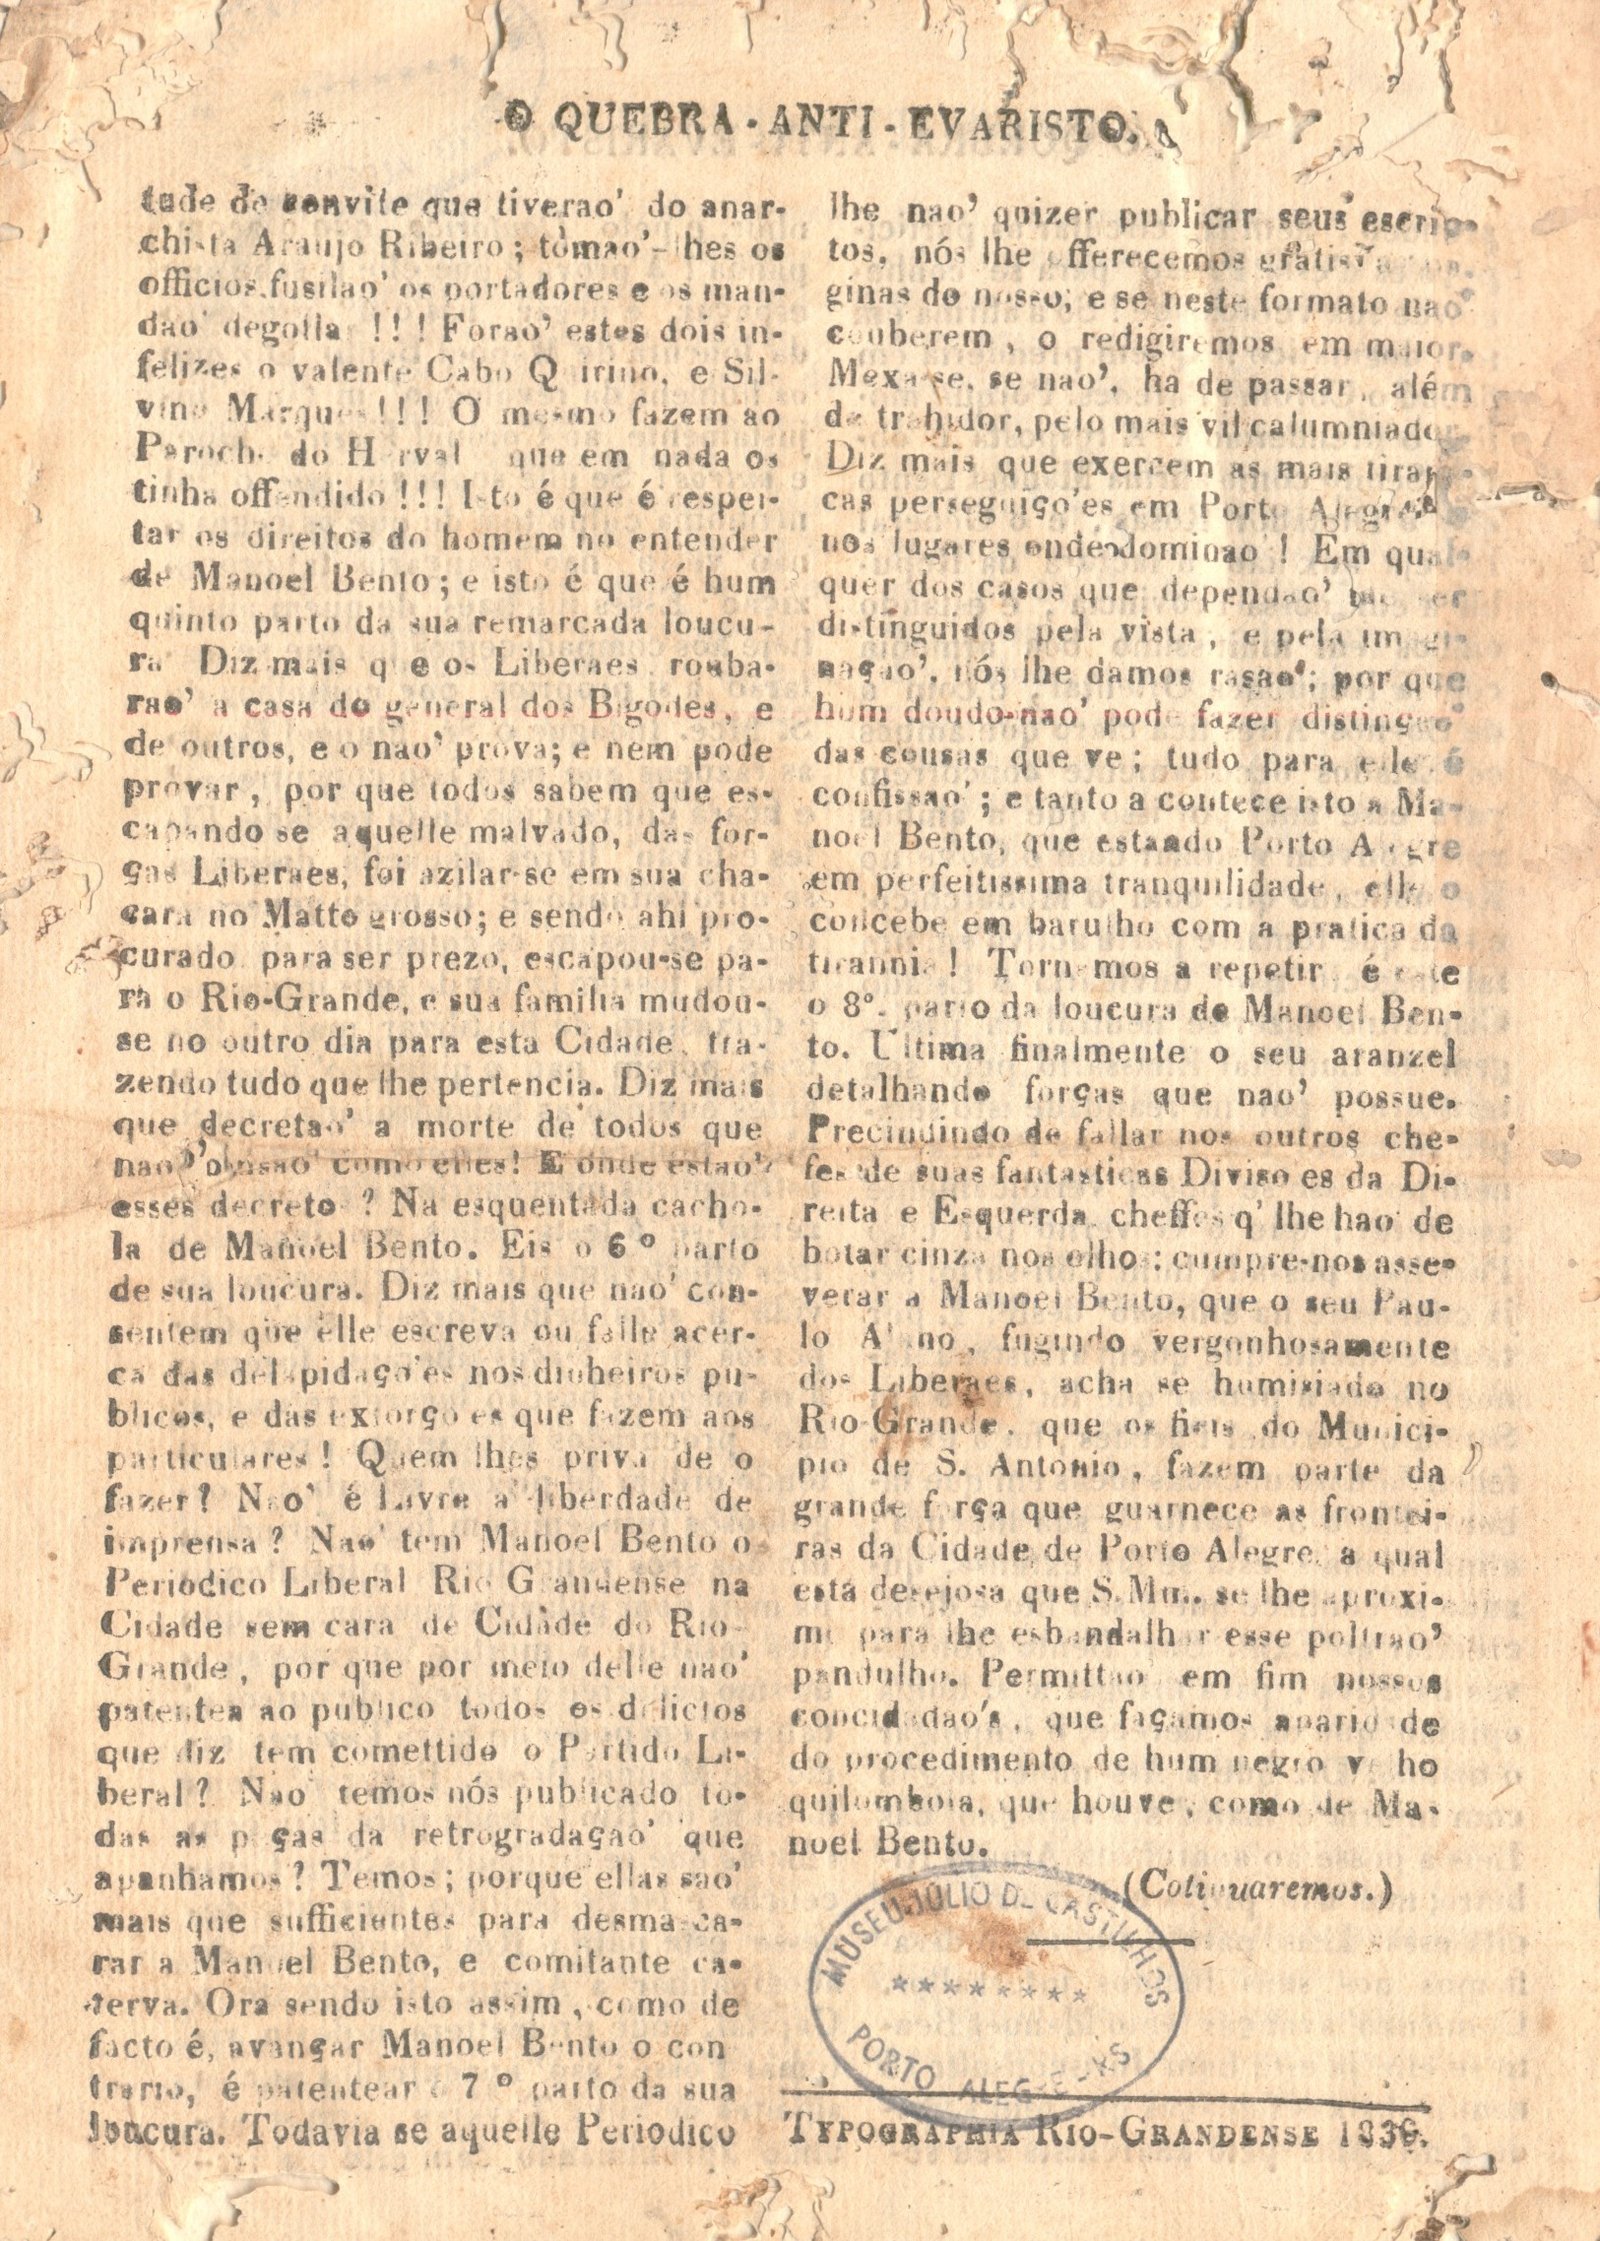 O QUEBRA-ANTI-EVARISTO.
tude do convite que tiverao' do anar-
chista Araujo Ribeiro; tomao'-lhes os
officios, fusilao' os portadores e os man-
dao' degollar !!! Forao' estes dois in-
felizes o valente Cabo Quirino, e Sil-
vino Marques!!! O mesmo fazem ao
Parocho do Herval que em nada os
tinha offendido!!! Isto é que é respei-
tar os direitos do homem no entender
de Manoel Bento; e isto é que é hum
quinto parto da sua remarcada loucu-
ra Diz mais que os Liberaes rouba-
rao' a casa do general dos Bigodes, e
de outros, e o nao' prova; e nem pode
provar, por que todos sabem que es-
capando se aquelle malvado, das for-
ças Liberaes, foi azilar-se em sua cha-
cara no Matto grosso; e sendo ahi pro-
curado para ser prezo, escapou-se pa-
ra o Rio-Grande, e sua familia mudou-
se no outro dia para esta Cidade, tra-
zendo tudo que lhe pertencia. Diz mais
que decretao' a morte de todos que
nao' pensao' como elles! E onde estao'
esses decretos? Na esquentada cacho-
la de Manoel Bento. Eis o 6º parto
de sua loucura. Diz mais que nao' con-
sentem que elle escreva ou falle acer-
ca das delapidaço'es nos dinheiros pu-
blicos, e das extorço'es que fazem aos
particulares! Quem lhes priva de o
fazer? Nao' é Livre a liberdade de
imprensa? Nao' tem Manoel Bento o
Periodico Liberal Rio Grandense na
Cidade sem cara de Cidade do Rio-
Grande, por que por meio delle nao'
patentea ao publico todos os delictos
que diz tem comettido o Partido Li-
beral? Nao' temos nós publicado to-
das as peças da retrogradaçao' que
apanhamos? Temos; porque ellas sao'
mais que sufficientes para desmasca-
rar a Manoel Bento, e comitante ca-
terva. Ora sendo isto assim, como de
facto é, avançar Manoel Bento o con
trario, é patentear o 7º parto da sua
loucura. Todavia se aquelle Periodico
lhe nao' quizer publicar seus escrip-
tos, nós lhe offerecemos gratis
ginas do nosso; e se neste formato nao'
couberem, o redigiremos em maior.
Mexa-se, se nao', ha de passar, além
de trahidor, pelo mais vil calumniador
Diz mais que exercem as mais tirani-
cas perseguiço'es em Porto Alegre, e
nos lugares onde dominao'! Em qual-
quer dos casos que dependao' de ser
distinguidos pela vista, e pela imagi-
naçao', nós lhe damos rasao'; por que
hum doudo nao' pode fazer distinçao'
das cousas que ve; tudo para elle é
confissao'; e tanto a contece isto a Ma-
noel Bento, que estando Porto Alegre
em perfeitissima tranquilidade, elle o
concebe em barulho com a pratica da
tirannia! Tornamos a repetir, é este
o 8º. parto da loucura de Manoel Ben-
to. Ultima finalmente o seu aranzel
detalhando forças que nao' possue.
Precindindo de fallar nos outros che-
fes de suas fantasticas Diviso es da Di-
reita e Esquerda, cheffes q' lhe hao' de
botar cinza nos olhos; cumpre-nos asse-
verar a Manoel Bento, que o seu Pau-
lo Alano, fugindo vergonhosamente
dos Liberaes, acha se humisiado no
Rio-Grande, que os fieis do Munici-
pio de S. Antonio, fazem parte da
grande força que guarnece as frontei-
ras da Cidade de Porto Alegre, a qual
está desejosa que S. Mm. se lhe aproxi-
me para lhe esbandalhar esse poltrao'
pandulho. Permittao' em fim nossos
concidadao's, que façamos aparidade
do procedimento de hum negro velho
quilombola, que houve, como de Ma-
noel Bento.
(Cotinuaremos.)
MUSEU JULIO DE CASTILHOS
********
PORTO ALEGRE-RS
TYPOGRAPHIA RIO-GRANDENSE 1836.